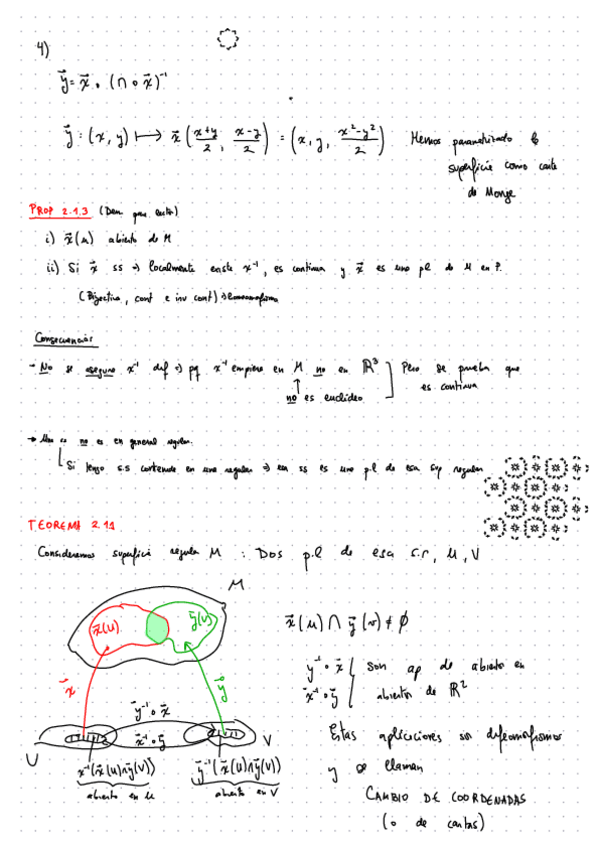 4)
ȳ = x⃗ ∘ (Π ∘ x⃗)⁻¹
ȳ : (x, y) ⟼ x⃗ ((x+y)/2, (x-y)/2) = (x, y, (x²-y²)/2) Hemos parametrizado la
superficie como carta
de Monge
PROP 2.1.3 (Dem
i) x⃗(u) abierto de M
ii) Si x⃗ ss ⇒ localmente existe x⁻¹, es continua y x⃗ es una p.l de M en P.
(Biyectiva, cont e inv cont) ⇒ homeomorfismo
Consecuencias
- No se asegura x⁻¹ def ⇒ pq x⁻¹ empieza en M no en ℝ³ ] Pero se prueba que
↑ es continua
no es euclídeo
→ una ss no es en general regular.
Si tengo s.s contenida en una regular ⇒ esa ss es una p.l de esa sup regular
TEOREMA 2.11
Consideramos superficie regular M : Dos p.l de esa s.r, U, V
M
x⃗(U) ȳ(V)
x⃗(U) ∩ ȳ(V) ≠ ∅
y⁻¹ ∘ x⃗ { son ap de abierto en
x⃗⁻¹ ∘ ȳ { abiertos de ℝ²
x⃗ ȳ
ȳ⁻¹ ∘ x⃗
x⃗⁻¹ ∘ ȳ
U V
Estas aplicaciones son difeomorfismos
y se llaman
x⁻¹(x⃗(U)∩ȳ(V)) ȳ⁻¹(x⃗(U)∩ȳ(V))
abierto en U abierto en V
CAMBIO DE COORDENADAS
(o de cartas)